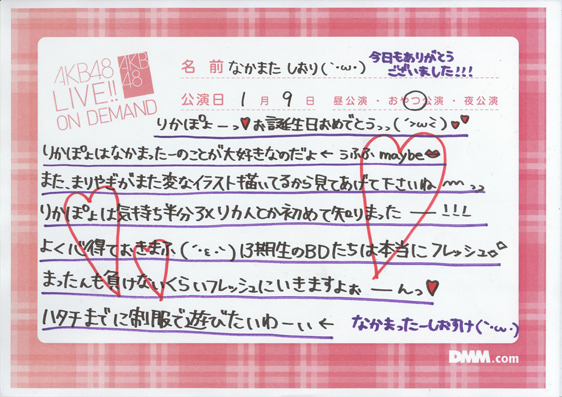 AKB48
LIVE!!
ON DEMAND
AKB
48
名前 なかまた しおり(´・ω・)
今日もありがとう
ございました!!!
公演日 1月9日 昼公演・おやつ公演・夜公演
りかぽよーっ♥お誕生日おめでとうっっ(´>ω<`)♥♥
りかぽよはなかまったーのことが大好きなのだよ←うふふ maybe
また、まりやぎがまた変なイラスト描いてるから見てあげて下さいね
りかぽよは気持ち半分アメリカ人とか初めて知りまったー!!!
よく心得ておきまふ(´・ε・`)13期生のBDたちは本当にフレッシュ
まったんも負けないくらいフレッシュにいきますよぉーんっ♥
ハタチまでに制服で遊びたいわーぃ←
なかまったーしおすけ(´・ω・)
DMM.com